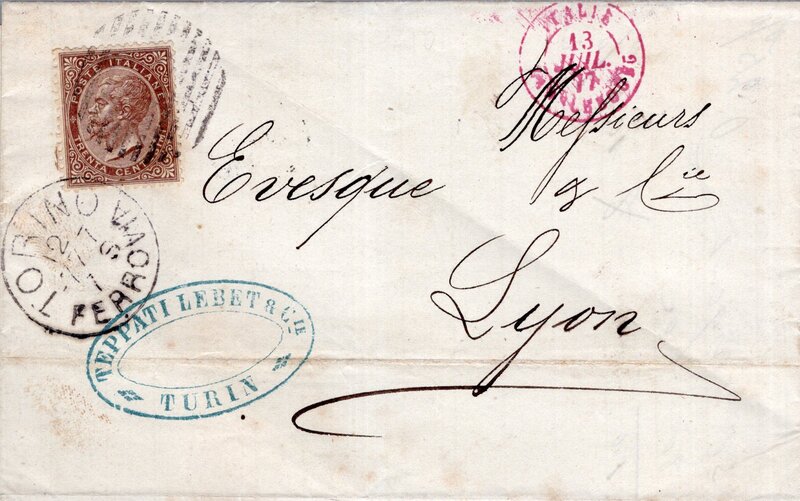 POSTE ITALIANE
TRENTA CENTESIMI
ITALIE
13
JUIL.
77
Messieurs
Evesque & Cie
Lyon
TORINO
12
7
77
S
FERROVIA
TEPPATI LEBET & CIE
TURIN